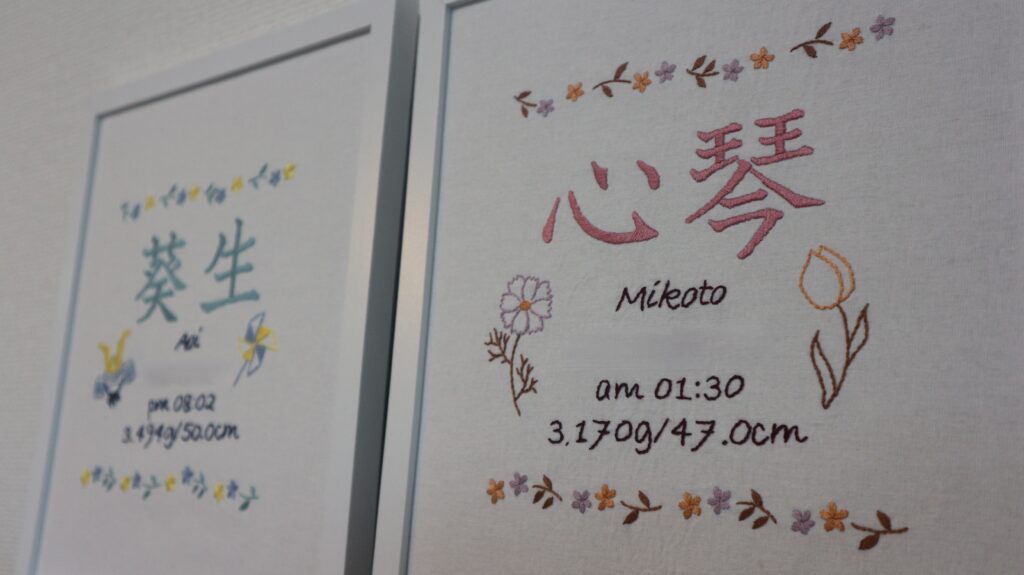 葵生
Aoi
pm 08:02
3.494g/50.0cm
心琴
Mikoto
am 01:30
3.170g/47.0cm